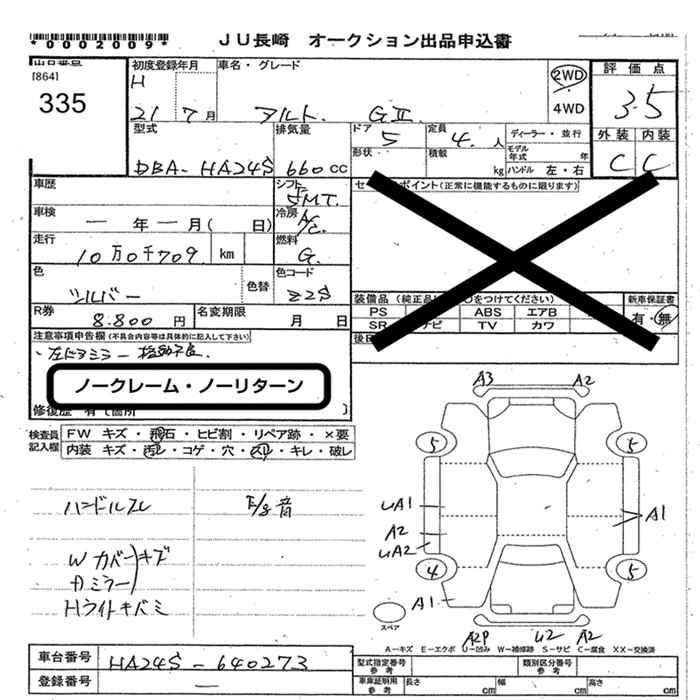 *0002009*
JU長崎 オークション出品申込書
出品番号
[864]
335
初度登録年月
H
21 7月
車名・グレード
アルト GⅡ
2WD
4WD
評価点
3.5
外装 内装
C C
型式
DBA-HA24S
排気量
660cc
ドア
5
定員
4. 人
形状
積載
kg
ディーラー・並行
モデル年式 年
ハンドル 左・右
車歴
シフト
5MT.
車検
— 年 — 月( 日)
冷房
A/C.
走行
10万0千709 km
燃料
G.
色
シルバー
色替
色コード
Z2S
R券
8.800 円
名変期限
月 日
セ ポイント(正常に機能するものに限ります)
装備品 (純正品 をつけてください)
新車保証書
有・無
PS
ABS エアB
SR ナビ TV カワ
注意事項申告欄(不具合内容等は具体的に記入して下さい)
・左ドアミラー 作動不良.
ノークレーム・ノーリターン
修復歴 有〔箇所 〕
検査員記入欄
FW キズ・飛石・ヒビ割・リペア跡・×要
内装 キズ・汚レ・コゲ・穴・スレ・キレ・破レ
ハンドルスレ
E/g音
Wカバーキズ
Dミラー
Hライトキバミ
A3 A2
5 5
UA1
A1
A2
UA2
4 5
A1
スペア
A2P U2 A2
A-キズ E-エクボ U-凹み W-補修跡 S-サビ C-腐食 XX-交換済
車台番号
HA24S-640273
登録番号
—
型式指定番号
参考
類別区分番号
参考
車庫証明用
参考
長さ cm
幅 cm
高さ cm